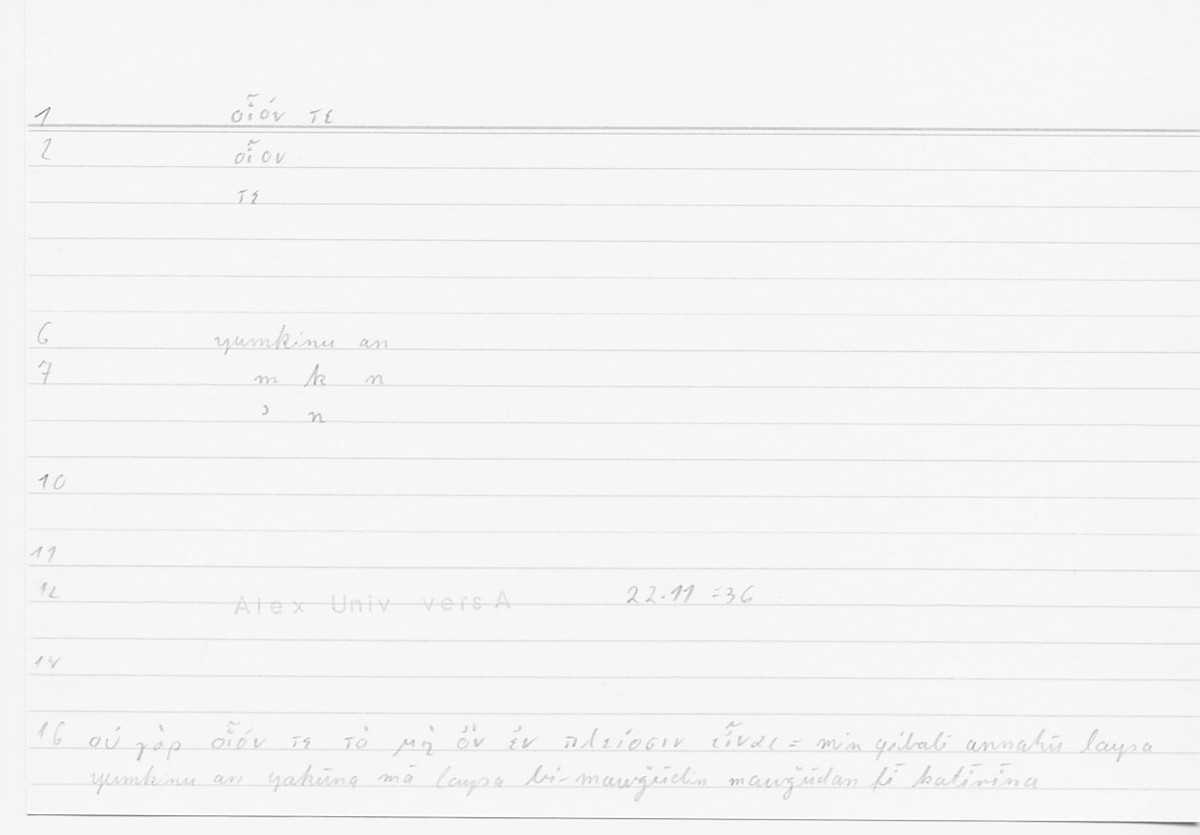 1 οἷόν τε
2 οἷον
τε
6 yumkinu an
7 m k n
ʾ n
10
11
12 Alex Univ vers A 22.11 = 36
14
16 οὐ γὰρ οἷόν τε τὸ μὴ ὂν ἐν πλείοσιν εἶναι = min qibali annahū laysa
yumkinu an yakūna mā laysa bi-mawǧūdin mawǧūdan fī kaṯīrīna